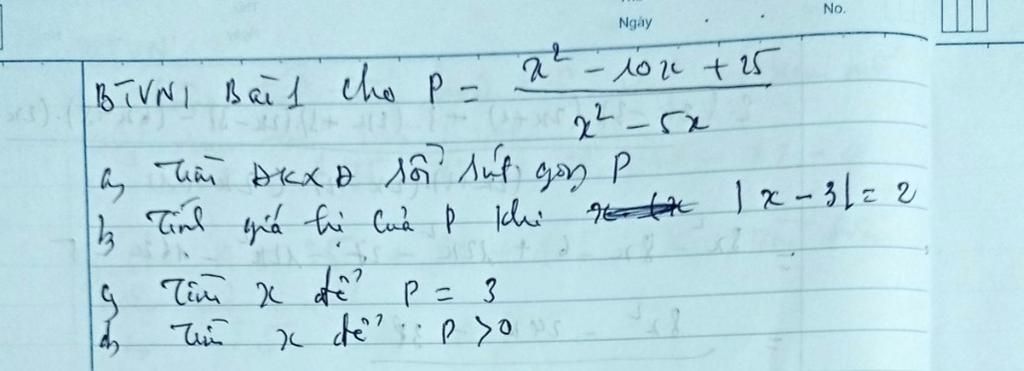 Ngày
No.
BTVN1 Bài 1 Cho P = \frac{x² - 10x + 25}{x² - 5x}
a, Tìm ĐKXĐ rồi rút gọn P
b, Tính giá trị của P khi |x - 3| = 2
c, Tìm x để P = 3
d, Tìm x để P > 0